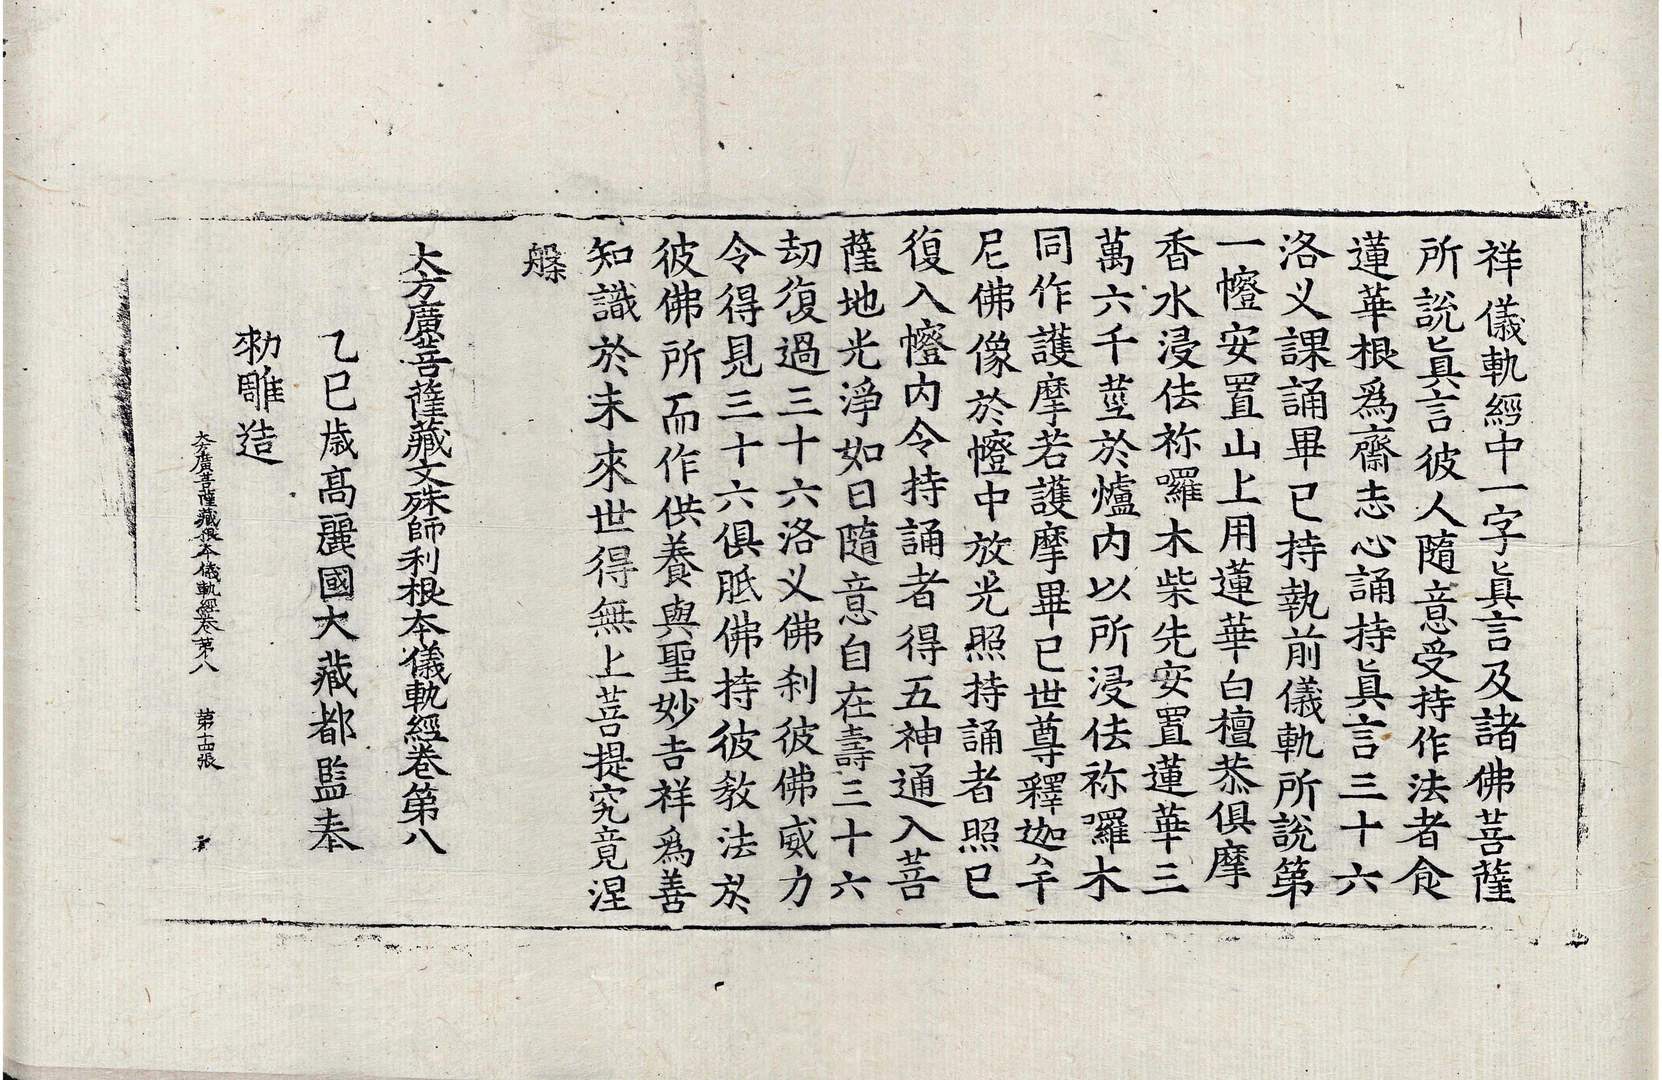 祥儀軌經中一字眞言及諸佛菩薩
所說眞言彼人隨意受持作法者食
蓮華根爲齋志心誦持眞言三十六
洛义課誦畢已持執前儀軌所說第
一幢安置山上用蓮華白檀恭俱摩
香水浸佉祢囉木柴先安置蓮華三
萬六千莖於爐内以所浸佉祢囉木
同作護摩若護摩畢已世尊釋迦牟
尼佛像於幢中放光照持誦者照已
復入幢内令持誦者得五神通入菩
薩地光淨如日隨意自在壽三十六
劫復過三十六洛义佛刹彼佛威力
令得見三十六俱胝佛持彼教法於
彼佛所而作供養與聖妙吉祥爲善
知識於未來世得無上菩提究竟涅
槃
大方廣菩薩藏文殊師利根本儀軌經卷第八
乙巳歳高麗國大藏都監奉
勑雕造
大方廣菩薩藏根本儀軌經卷第八 第十四張